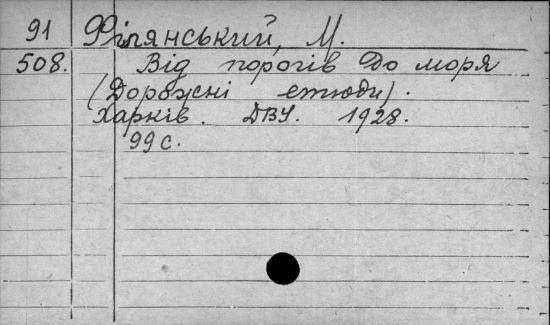 91 Філянський, М.
508. Від порогів до моря
(Дорожні етюди).
Харків. ДВУ. 1928.
99 с.